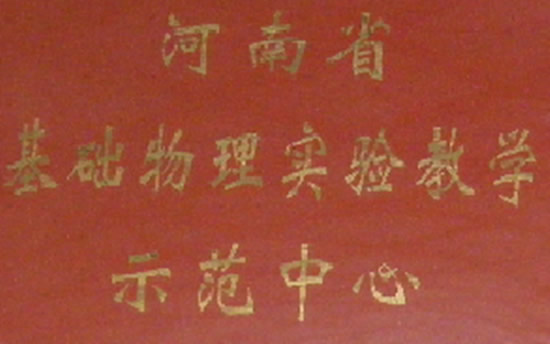 河南省
基础物理实验教学
示范中心